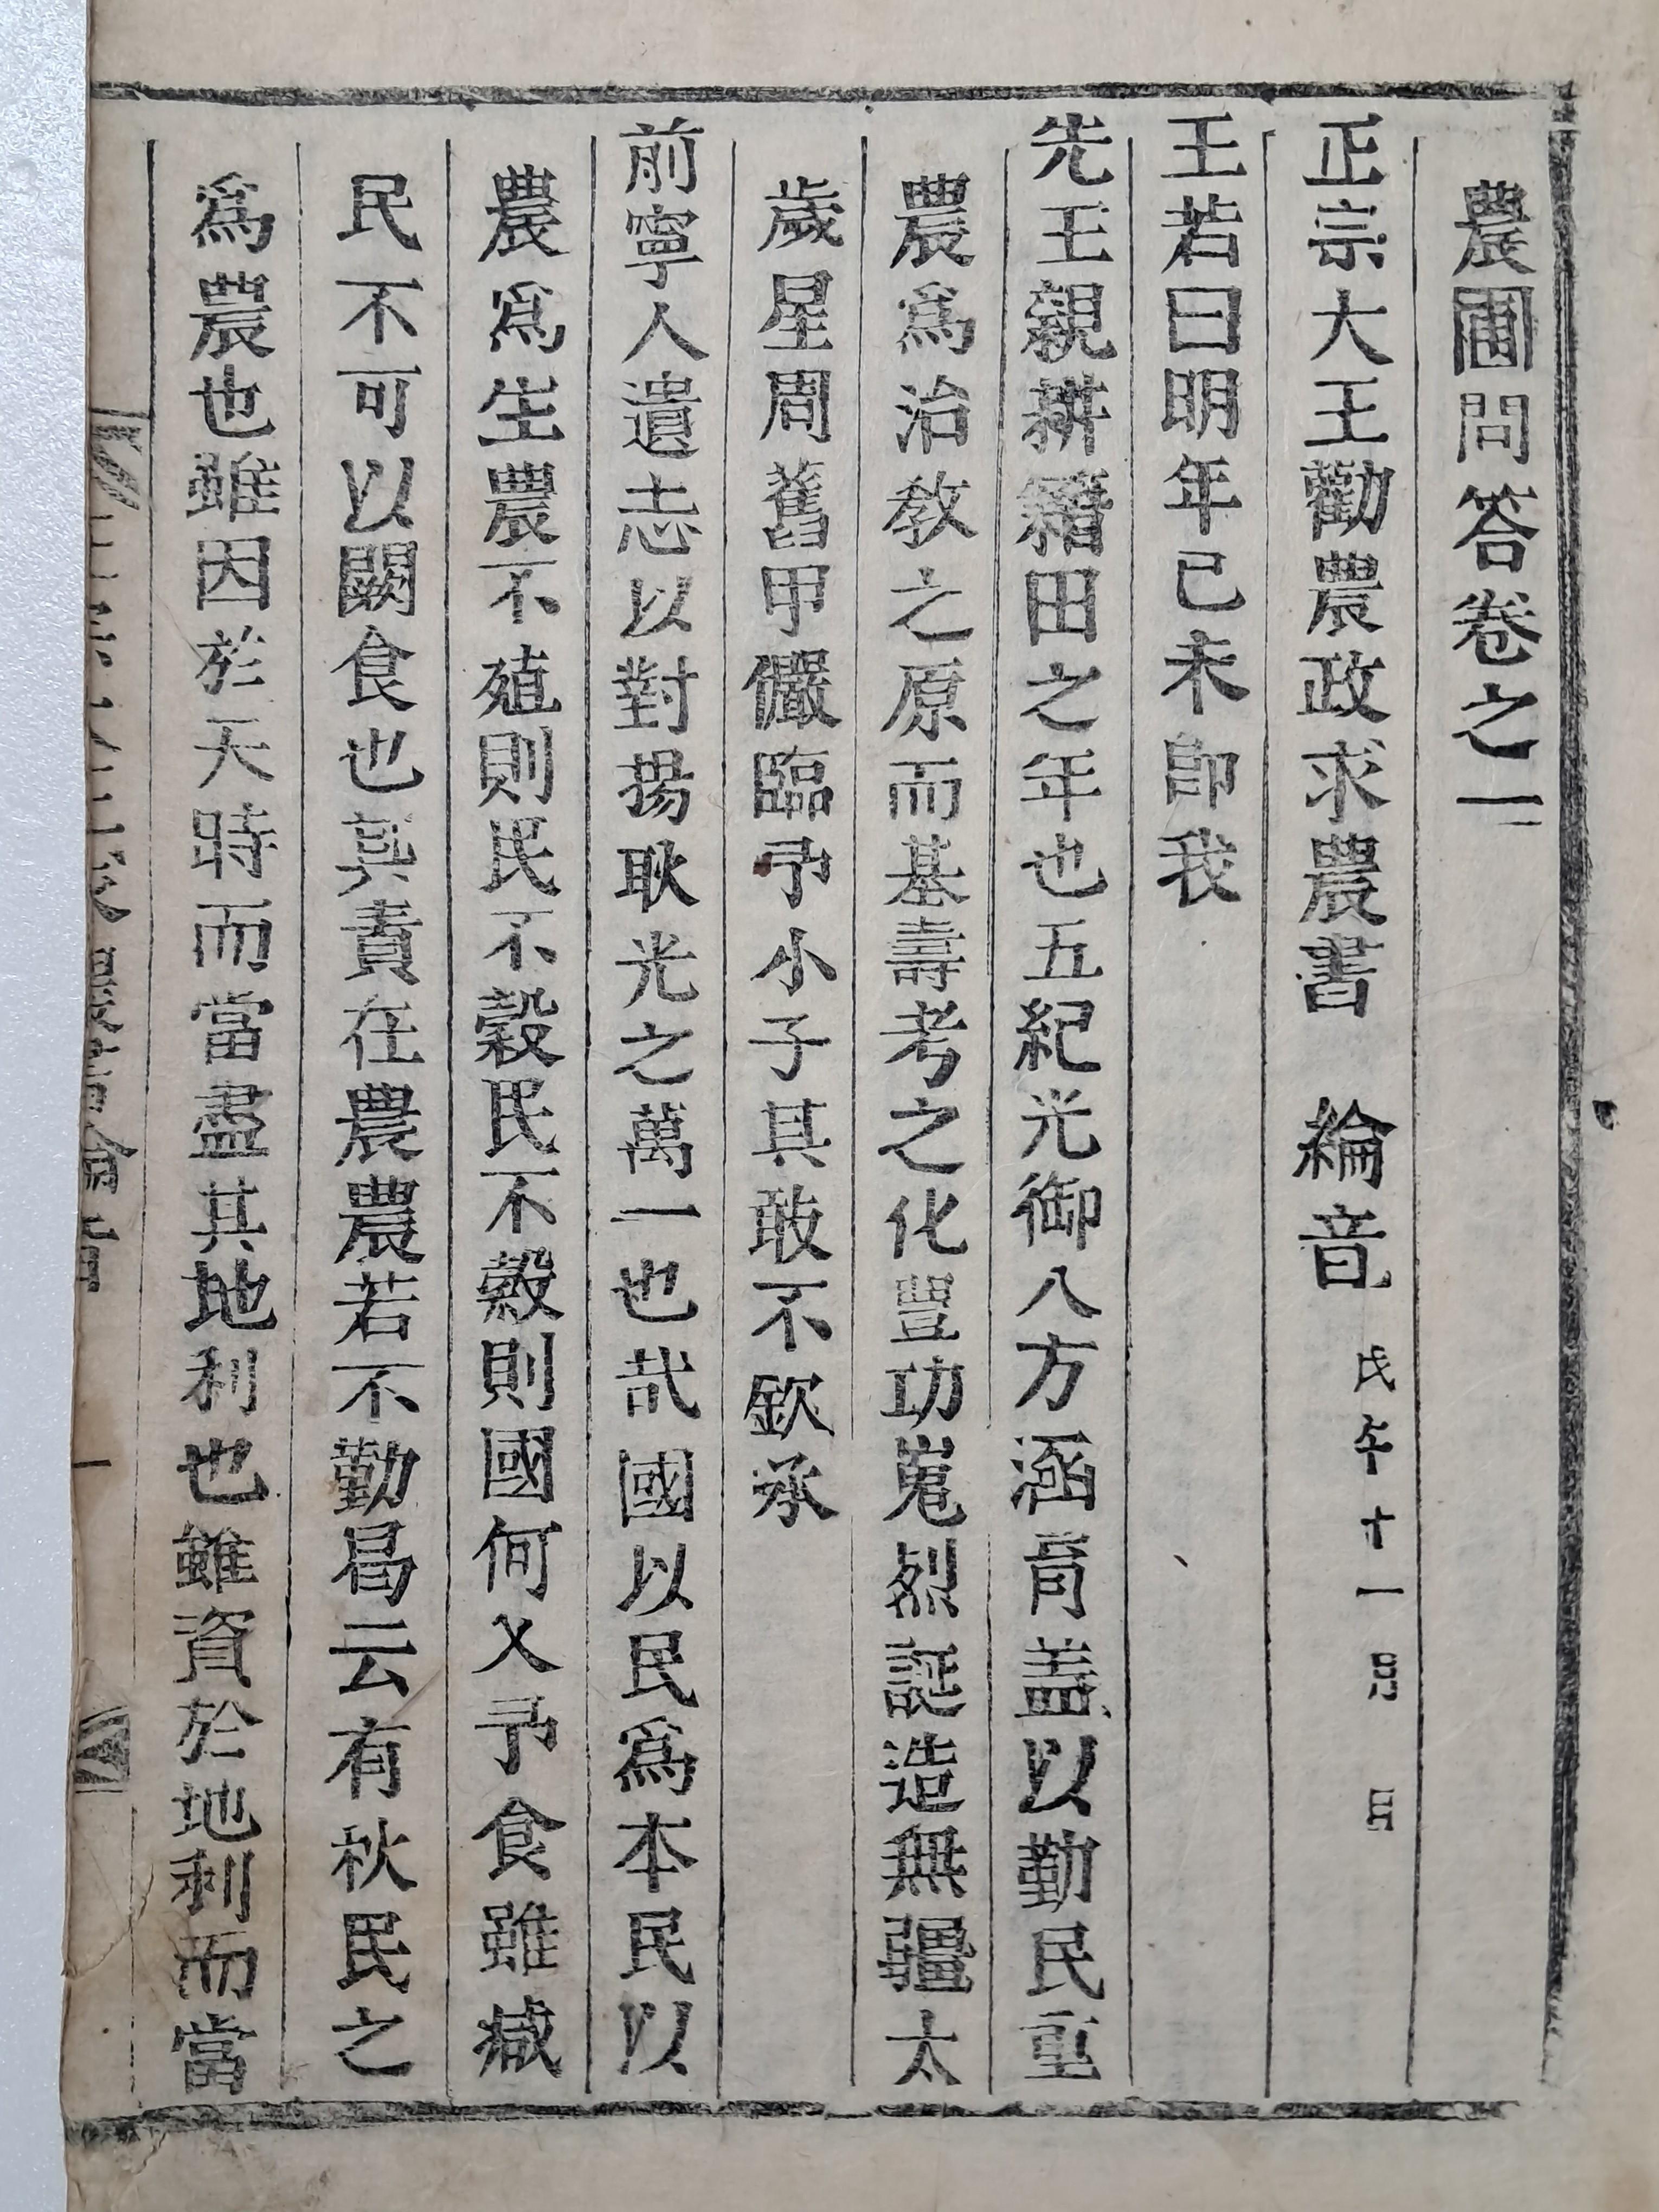 農圃問答卷之一
正宗大王勸農政求農書 綸音 戊午十一月 日
王若曰明年己未即我
先王親耕籍田之年也五紀光御八方涵育盖以勤民重
農爲治教之原而基壽考之化豐功嵬烈誕造無疆太
歲星周舊甲儼臨予小子其敢不欽承
前寧人遺志以對揚耿光之萬一也哉國以民爲本民以
農爲生農不殖則民不穀民不穀則國何又予食雖
民不可以闕食也其責在農農若不勤曷云有秋民之
爲農也雖因於天時而當盡其地利也雖資於地利而當